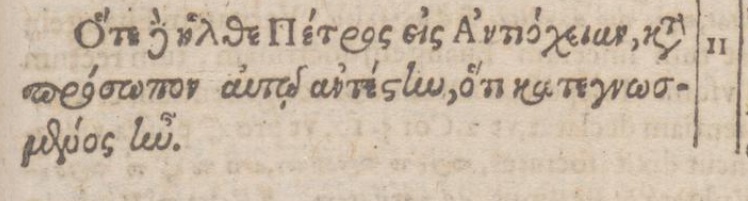 Ὅτε δὲ ἦλθε Πέτρος εἰς Ἀντιόχειαν, κατὰ 11
πρόσωπον αὐτῷ ἀντέστην, ὅτι κατεγνωσ-
μένος ἦν.